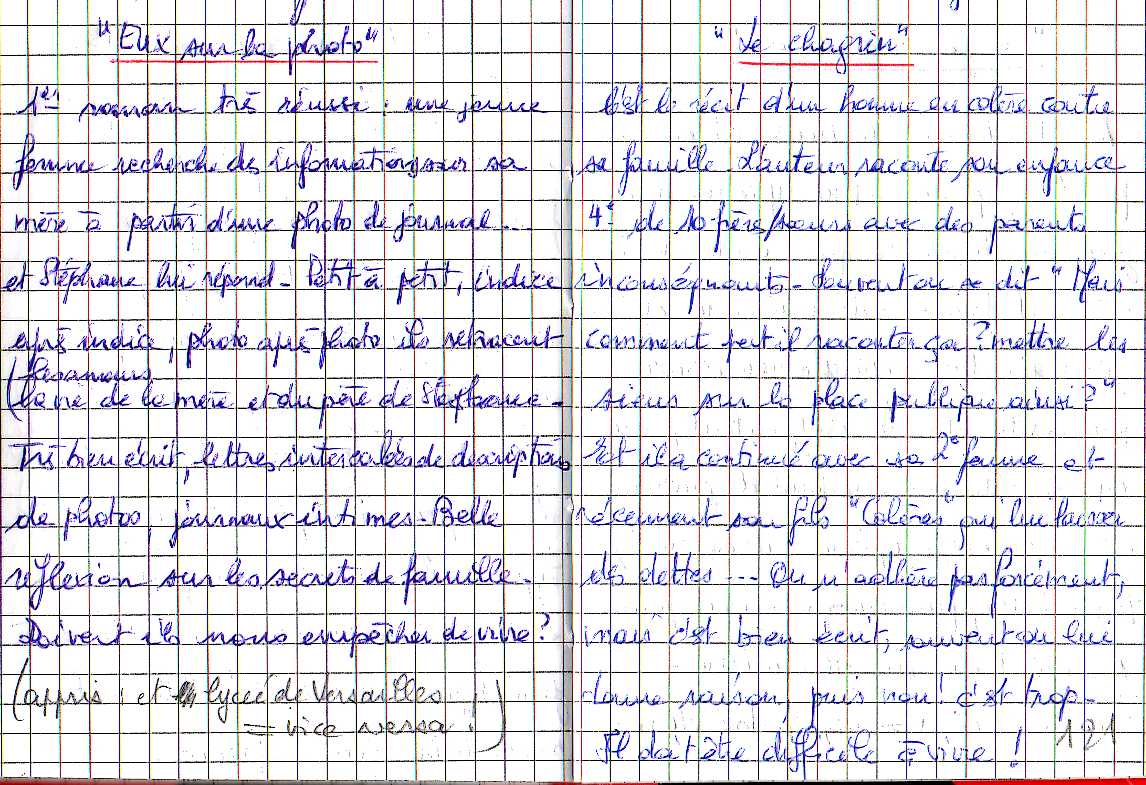 "Eux sur la photo"
1er roman très réussi : une jeune
femme recherche des informations sur sa
mère à partir d'une photo de journal...
et Stéphane lui répond - Petit à petit, indice
après indice, photo après photo ils retracent
(les amours
(la vie de la mère et du père de Stéphane -
Très bien écrit, lettres intercalées de descriptions
de photos, journaux intimes - Belle
réflexion sur les secrets de famille -
Doivent ils nous empêcher de vivre ?
(appris : et lycée de Versailles
= vice versa !)
"Le chagrin"
C'est le récit d'un homme en colère contre
sa famille. L'auteur raconte son enfance
4e de 10 frères/soeurs avec des parents
inconséquents - Souvent on se dit "Mais
comment peut il raconter ça ? mettre les
siens sur la place publique ainsi ?"
Et il a continué avec sa 2e femme et
récemment son fils "Colères" qui lui laisse
des dettes ... On n'adhère pas forcément,
mais c'est bien écrit, souvent on lui
donne raison, puis non ! c'est trop -
Il doit être difficile à vivre !
121